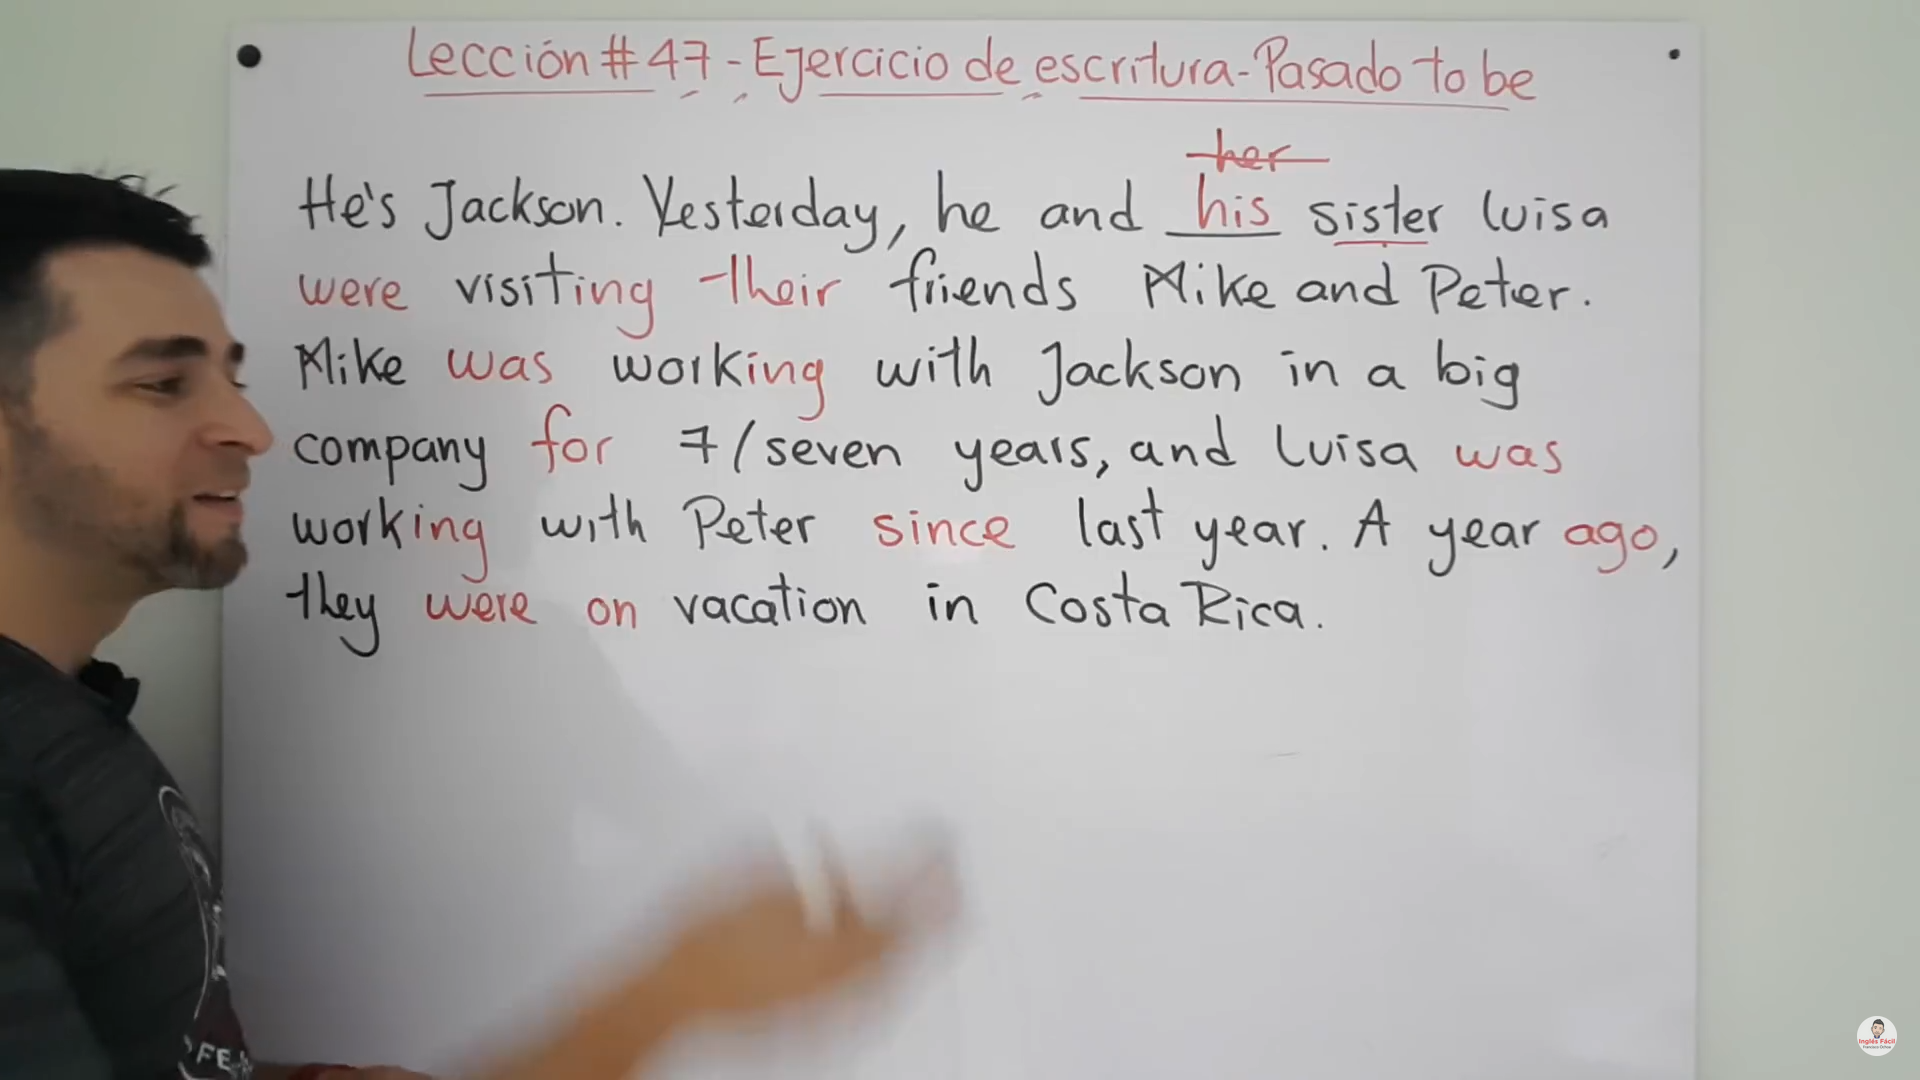 Lección # 47 - Ejercicio de escritura - Pasado to be
her
He's Jackson. Yesterday, he and his sister Luisa
were visiting their friends Mike and Peter.
Mike was working with Jackson in a big
company for 7/seven years, and Luisa was
working with Peter since last year. A year ago,
they were on vacation in Costa Rica.
Inglés Fácil